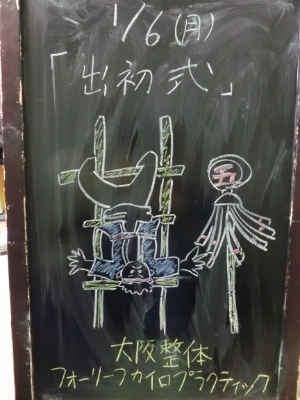 1/6(月)
「出初式」
五
大阪整体
フォーリーフカイロプラクティック